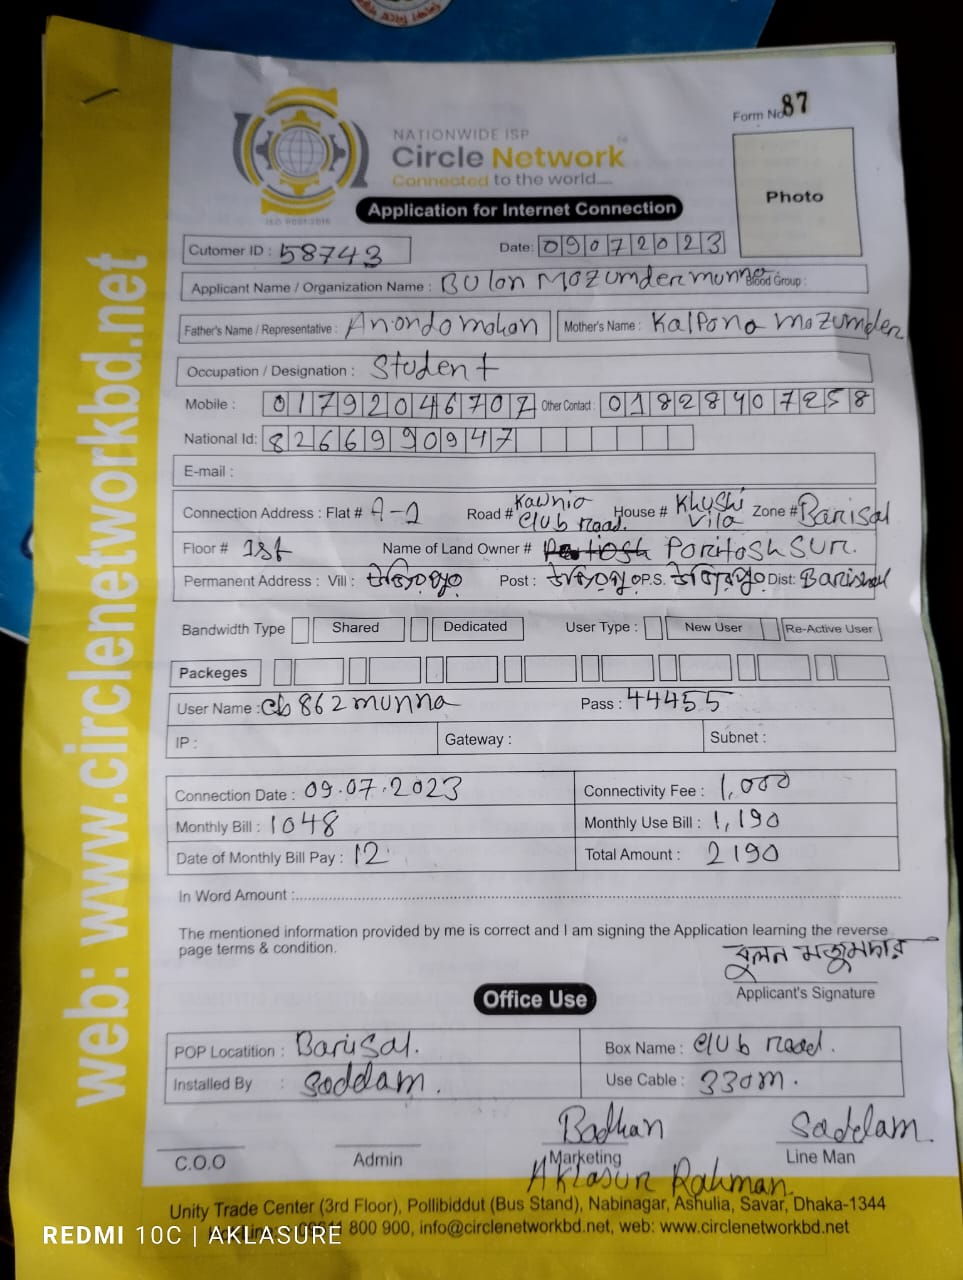 Form No 87
NATIONWIDE ISP
Circle Network
Connected to the world....
ISO 9001:2015
Photo
Application for Internet Connection
Cutomer ID : 58743 Date: 09072023
Applicant Name / Organization Name : Bulon Mozumder munna Blood Group :
Father's Name / Representative : Anondo mohan Mother's Name : Kalpona mozumder
Occupation / Designation : Student
Mobile : 01792046707 Other Contact : 01828407258
National Id: 8266990947
E-mail :
Connection Address : Flat # A-2 Road # Kawnia club road. House # Khushi vila Zone # Barisal
Floor # 1st Name of Land Owner # Paritosh Sur.
Permanent Address : Vill : Post : P.S. Dist: Barishal
Bandwidth Type Shared Dedicated User Type : New User Re-Active User
Packeges
User Name : cb862munna Pass : 44455
IP : Gateway : Subnet :
Connection Date : 09.07.2023 Connectivity Fee : 1,000
Monthly Bill : 1048 Monthly Use Bill : 1,190
Date of Monthly Bill Pay : 12 Total Amount : 2190
In Word Amount :
The mentioned information provided by me is correct and I am signing the Application learning the reverse
page terms & condition.
বুলন মজুমদার
Applicant's Signature
Office Use
POP Locatition : Barisal. Box Name : club road.
Installed By : Saddam. Use Cable : 330m.
Badhan Saddam.
C.O.O Admin Marketing Line Man
Aklasur Rahman.
Unity Trade Center (3rd Floor), Pollibiddut (Bus Stand), Nabinagar, Ashulia, Savar, Dhaka-1344
800 900, info@circlenetworkbd.net, web: www.circlenetworkbd.net
REDMI 10C | AKLASURE
web: www.circlenetworkbd.net